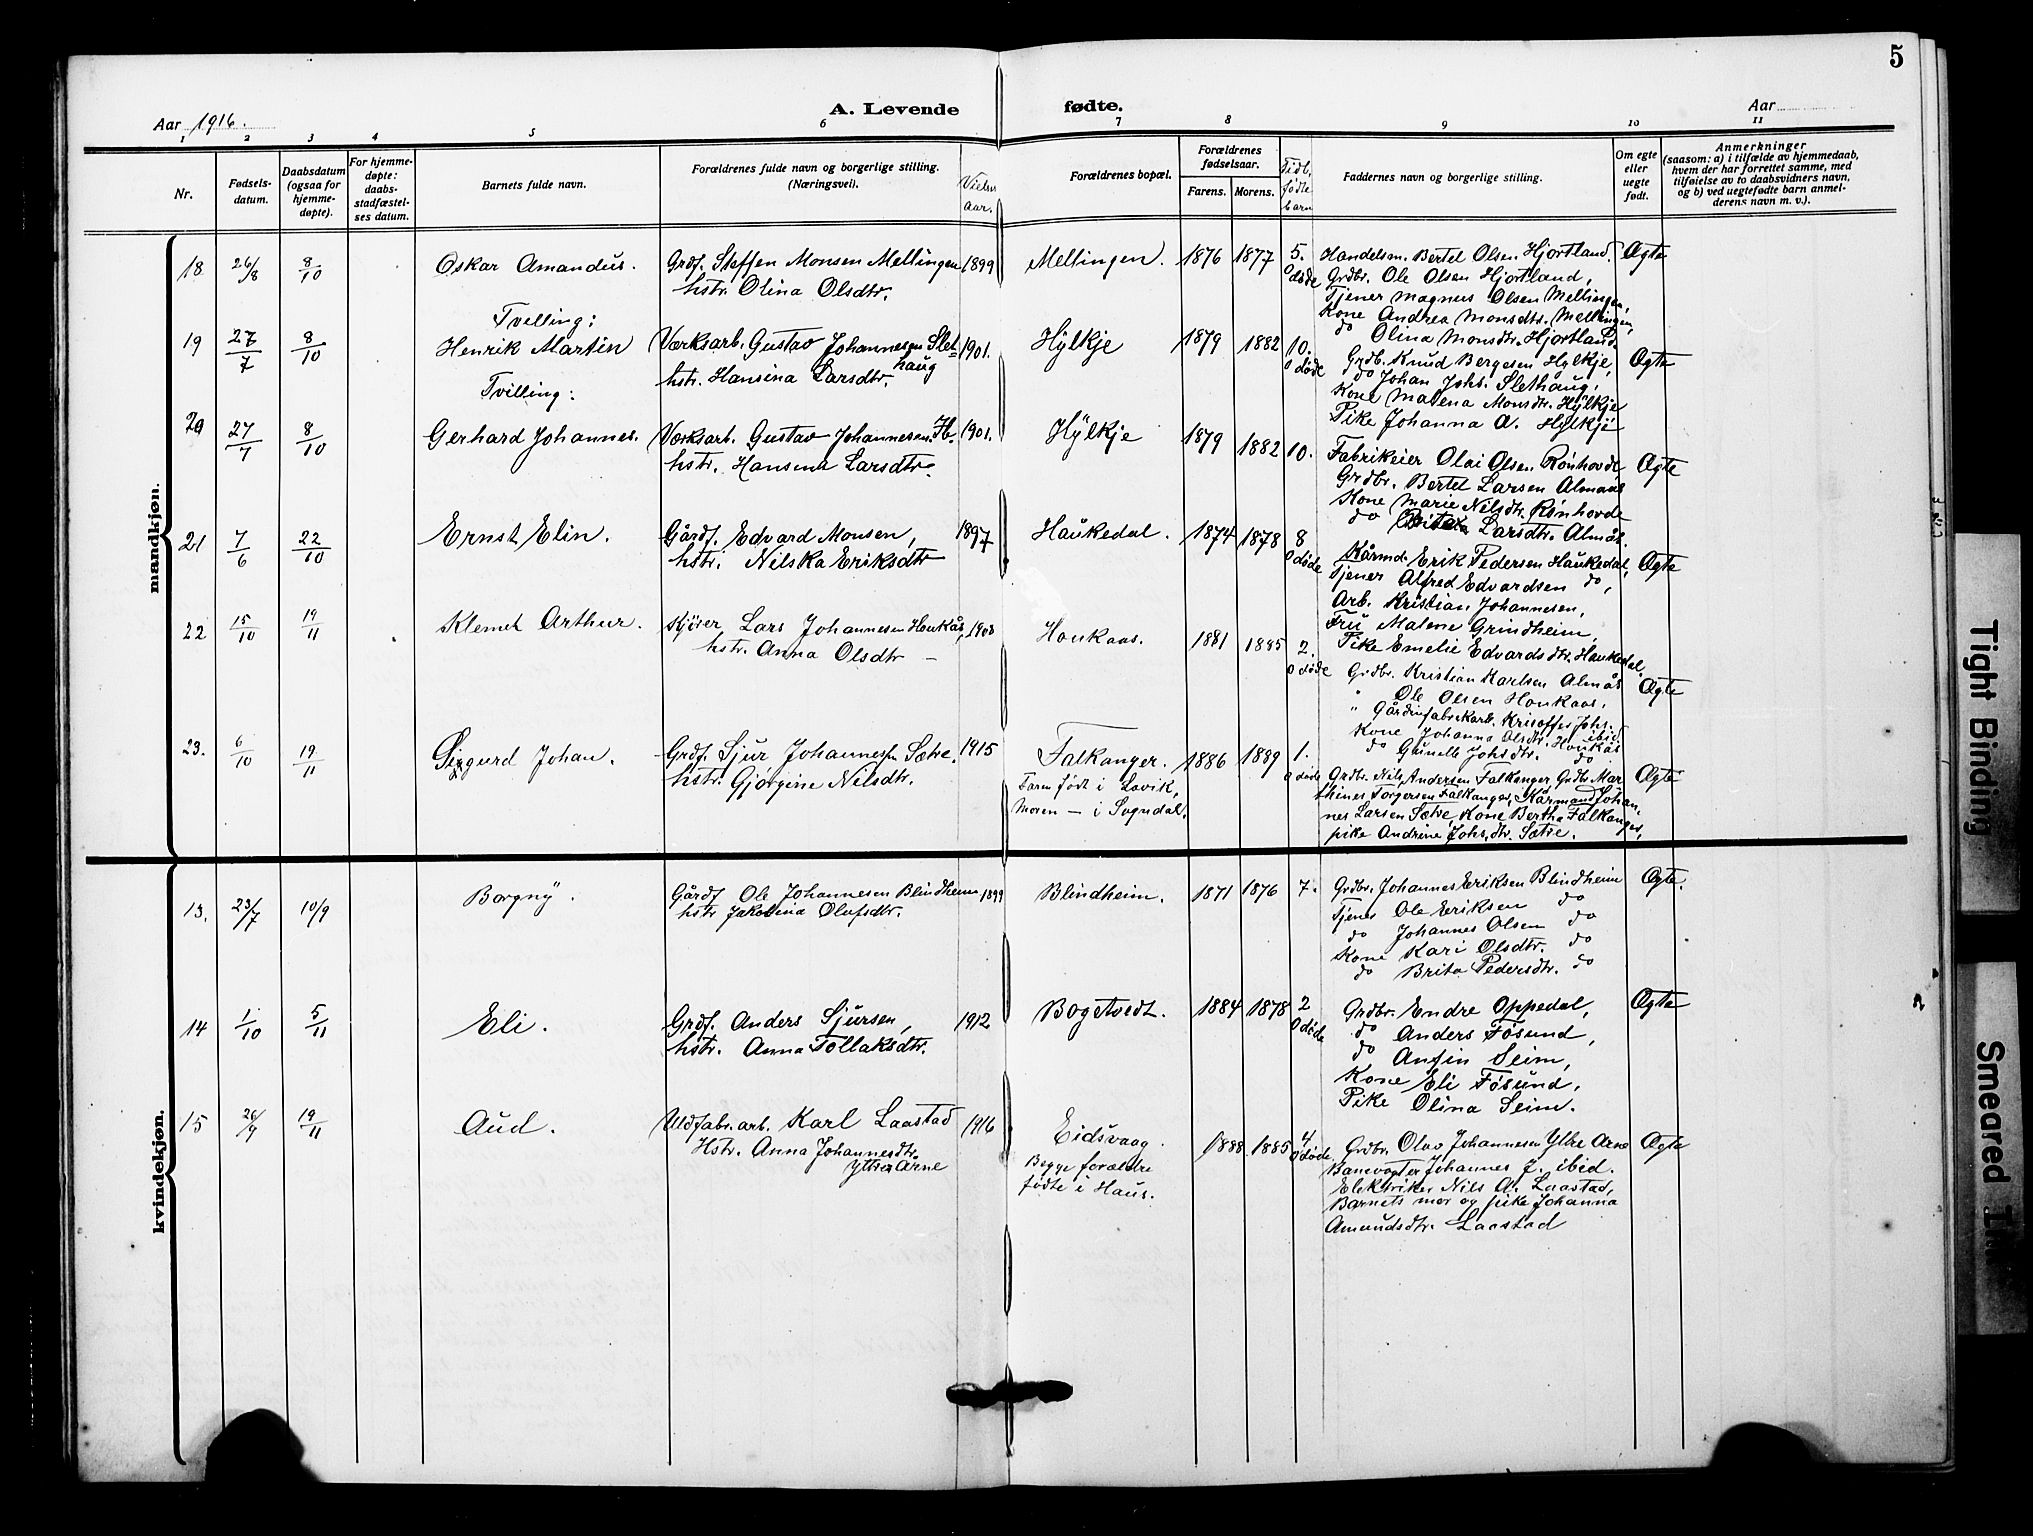 5
A. Levende fødte.
Aar 1916.
Aar
1 2 3 4 5 6 7 8 9 10 11
Nr.
Fødsels-
datum.
Daabsdatum
(ogsaa for
hjemme-
døpte).
For hjemme-
døpte:
daabs-
stadfæstel-
ses datum.
Barnets fulde navn.
Forældrenes fulde navn og borgerlige stilling.
(Næringsvei).
Vielses
aar.
Forældrenes bopæl.
Forældrenes
fødselsaar.
Farens. Morens.
Tidl.
fødte
barn
Faddernes navn og borgerlige stilling.
Om egte
eller
uegte
født.
Anmerkninger
(saasom: a) i tilfælde av hjemmedaab,
hvem der har forrettet samme, med
tilføielse av to daabsvidners navn,
og b) ved uegtefødte barn anmel-
derens navn m. v.).
mandkjøn.
18 26/8 8/10 Oskar Amandus.
Grdf. Steffen Monsen Mellingen
hstr. Olina Olsdtr.
1899 Mellingen. 1876 1877 5.
0 døde
Handelsm. Bertel Olsen Hjortland.
Grdbr. Ole Olsen Hjortland,
Tjener Magnus Olsen Mellingen,
Kone Andrea Monsdtr. Mellingen,
do Olina Monsdtr. Hjortland
Ægte
19 27/7 8/10 Tvilling:
Henrik Martin
Værksarb. Gustav Johannesen Slet-
haug
hstr. Hansina Larsdtr.
1901. Hylkje 1879 1882 10.
0 døde
Grdb. Knud Bergesen Hylkje,
do Johan Johs. Slethaug,
Kone Malena Monsdtr. Hylkje
Pike Johanna A. Hylkje
Ægte
20 27/7 8/10 Tvilling:
Gerhard Johannes.
Værksarb. Gustav Johannesen
hstr. Hansina Larsdtr.
1901. Hylkje 1879 1882 10.
Fabrikeier Olai Olsen Rønhovde
Grdbr. Bertel Larsen Almaas
Kone Marie Nilsdtr. Rønhovde
do Larsdtr. Almås.
Ægte
21 7/6 22/10 Ernst Elin.
Gårdf. Edvard Monsen,
hstr. Nilska Eriksdtr
1897 Haukedal. 1874 1878 8
0 døde
Kårmd. Erik Pedersen Haukedal,
Tjener Alfred Edvardsen do,
Arb. Kristian Johannesen,
Fru Malene Grindheim,
Pike Emelie Edvardsdtr. Haukedal.
Ægte
22 15/10 19/11 Klemet Arthur.
Kjører Lars Johannesen Haukås,
hstr. Anna Olsdtr –
1908 Haukaas. 1881 1885 2.
0 døde
Grdbr. Kristian Karlsen Almås
" Ole Olsen Haukaas.
" Gårdinfabrikarb. Kristoffer Johs. ibid.
Kone Johanna Olsdtr. Haukås
do Gunelle Johsdtr. do
Ægte
23. 6/10 19/11 Sigurd Johan.
Grdf. Sjur Johannessen Sætre.
hstr. Gjørgine Nilsdtr.
1915 Falkanger.
Faren født i Lavik,
Moren — i Sogndal.
1886 1889 1.
0 døde
Grdbr. Nils Andersen Falkanger Grdbr. Mar-
thines Torgersen Falkanger, Kårmand Johan-
nes Larsen Sætre, Kone Bertha Falkanger,
pike Andrine Johs.dtr. Sætre.
Ægte
kvindekjøn.
13. 23/7 10/9 Borgny.
Gårdf Ole Johannesen Blindheim
hstr Jakobina Olufsdtr.
1899 Blindheim. 1871 1876 7.
Grdbr. Johannes Eriksen Blindheim
Tjener Ole Eriksen do
do Johannes Olsen do
Kone Kari Olsdtr. do
do Brita Pedersdtr. do
Ægte.
14 1/10 5/11 Eli.
Grdf. Anders Sjursen,
hstr. Anna Tollaksdtr.
1912 Bogetvedt. 1884 1878 2
0 døde
Grdbr. Endre Oppedal,
do Anders Føsund,
do Anfin Seim,
Kone Eli Føsund,
Pike Olina Seim.
Ægte
15 26/9 19/11 Aud.
Uldfabr. arb. Karl Laastad
Hstr. Anna Johannesdtr.
Ytre Arne
1916 Eidsvaag.
Begge forældre
fødte i Haus.
1888 1885 4
0 døde
Grdbr. Olav Johannesen Ytre Arne
Banevogter Johannes J. ibid.
Elektriker Nils A. Laastad,
Barnets mor og pike Johanna
Amundsdtr. Laastad
Ægte
Tight Binding
Smeared